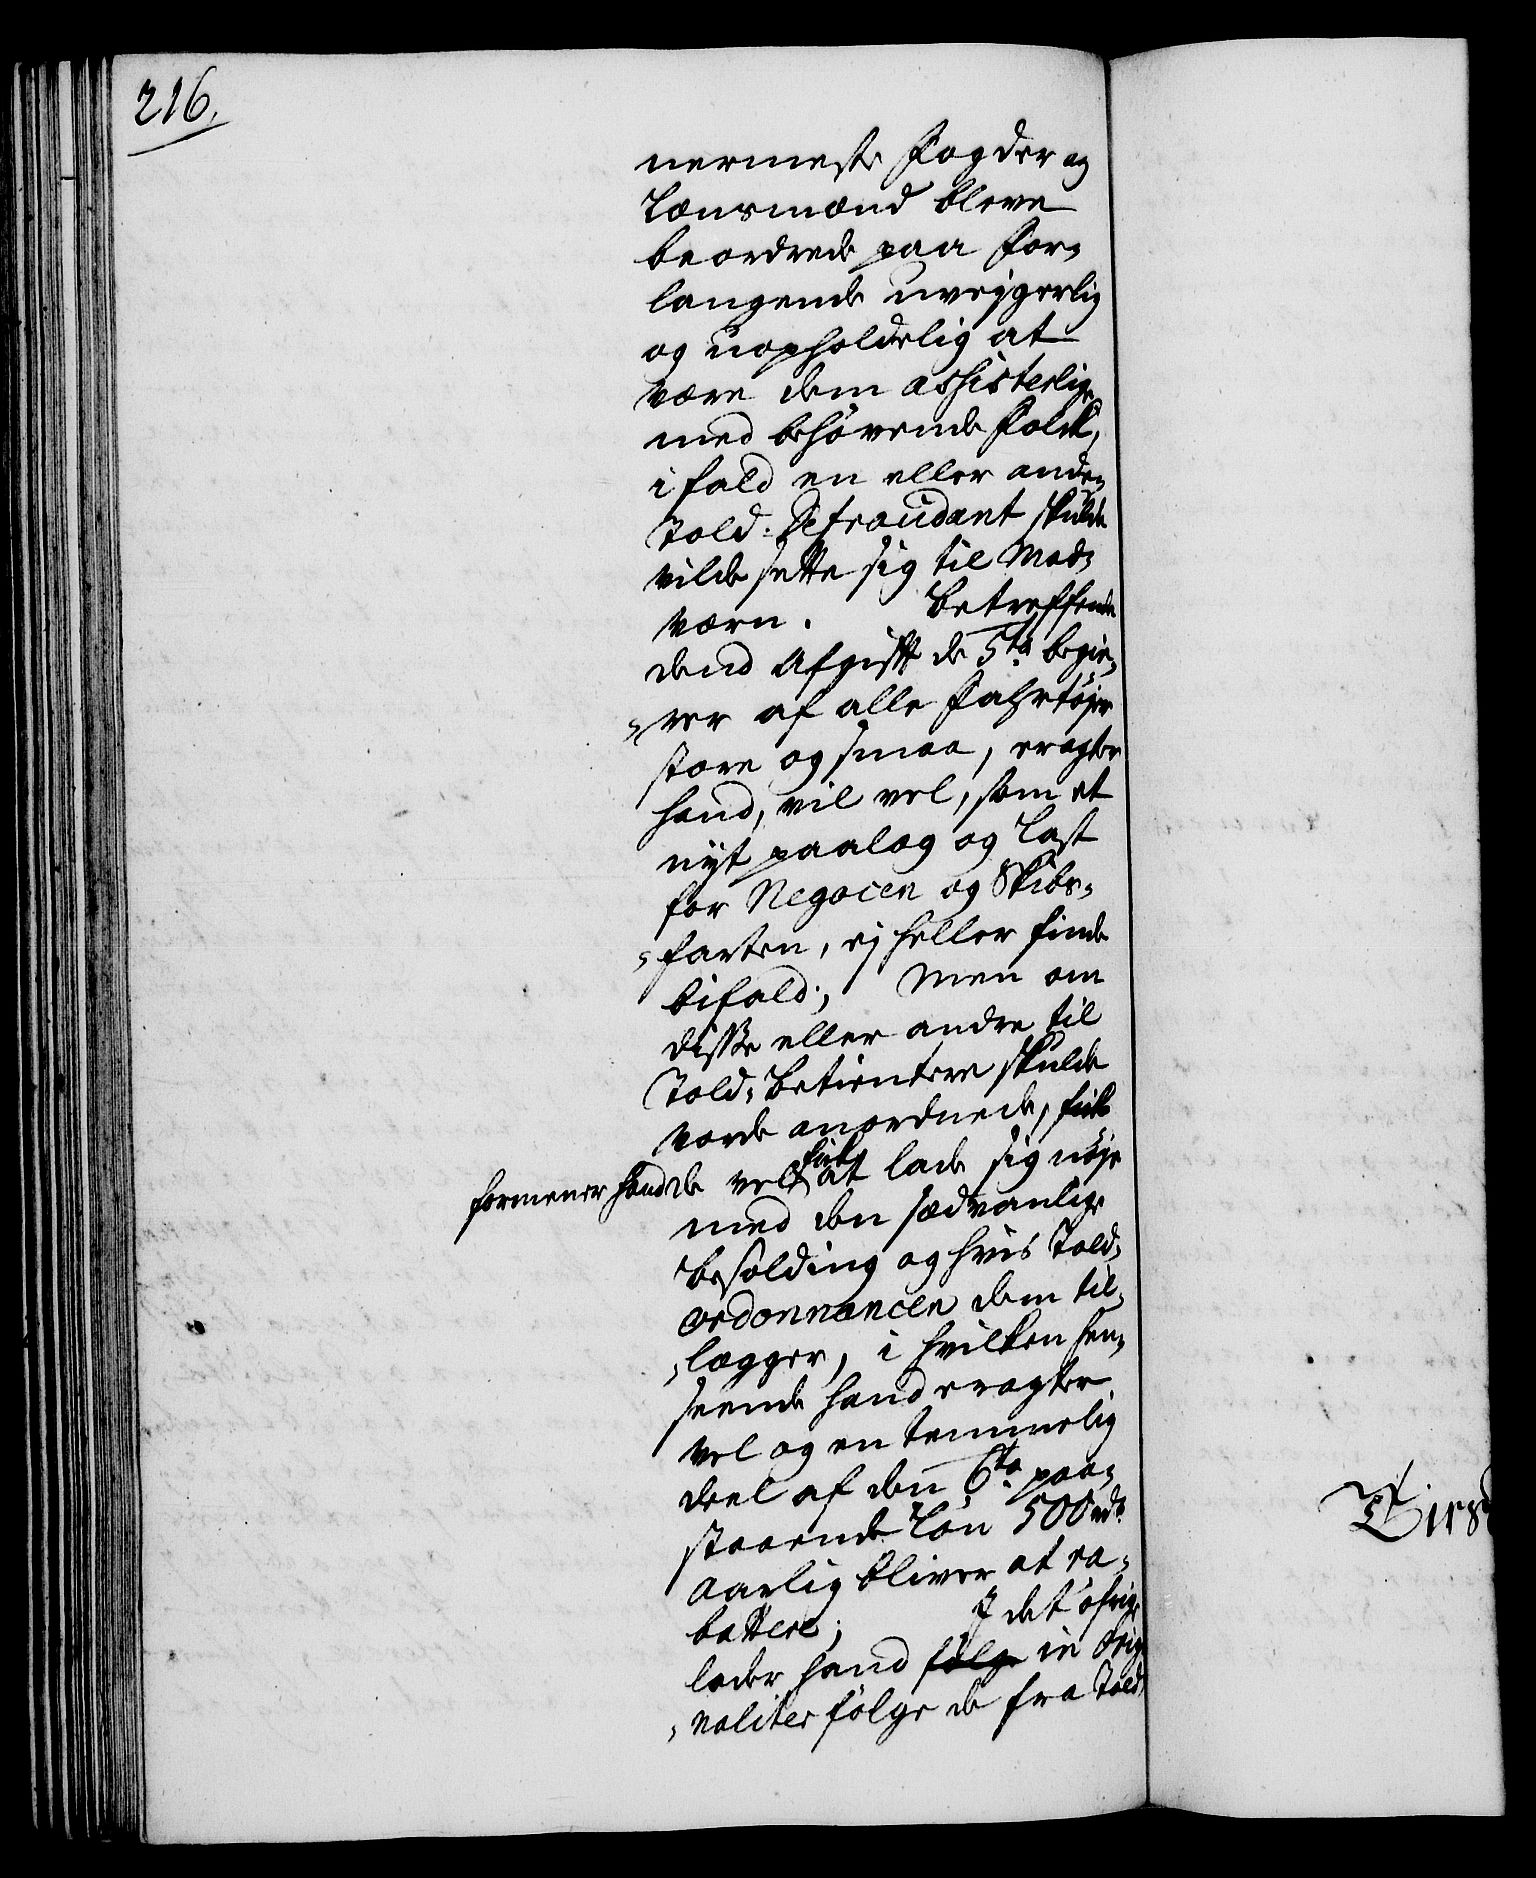 216.
nermeste Fogder og
Lænsmænd bleve
beordrede paa for-
langende uveÿgerlig
og uopholdelig at
være dem assisterlige
med behøvende Folck,
i fald en eller anden
Told-Defraudant skulde
vilde sette sig til Mod-
værn. Betreffende
dend Afgifft de 5te begie-
-rer af alle Fahrtøjer
store og smaa, eragter
hand, vil vel, som et
nyt paalæg og Last
for Negocen og Skibs-
-farten, ej heller finde
bifald; Men om
disse eller andre til
Told-Betientere skulde
vorde anordnede,
formener hand de vel fick at lade sig nøje
med den sædvanlige
besolding og hvis Told-
ordonnancen dem til-
-lægger, i hvilken hen-
seende hand eragter
vel og en temmelig
deel af den 6te paa-
staaende Løn 500 rdr
aarlig bliver at ra-
battere; I det øfrige
lader hand følge in Origi-
-naliter følge de fra Told-
Birs